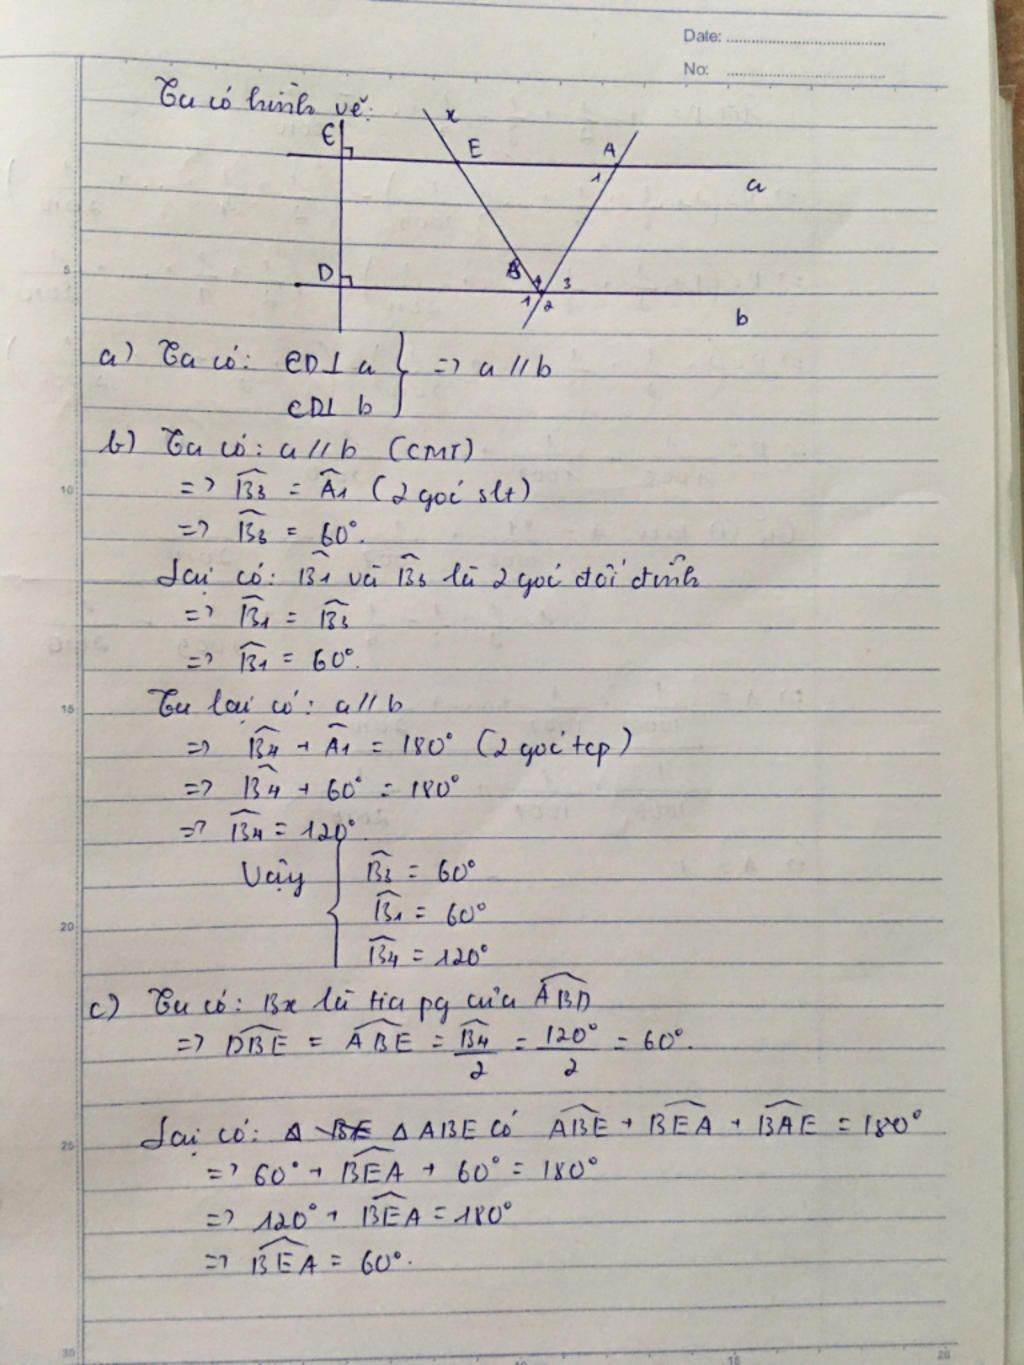 Date:
No:
Ta có hình vẽ:
x
C
E
A
1
a
D
B
4
3
1
2
b
5
a) Ta có: CD⊥ a } => a // b
CD⊥ b
b) Ta có: a // b (CMT)
10
=> B̂3 = Â1 (2 góc slt)
=> B̂3 = 60°.
Lại có: B̂1 và B̂3 là 2 góc đối đỉnh
=> B̂1 = B̂3
=> B̂1 = 60°.
15
Ta lại có: a // b
=> B̂4 + Â1 = 180° (2 góc tcp)
=> B̂4 + 60° = 180°
=> B̂4 = 120°.
Vậy { B̂3 = 60°
B̂1 = 60°
20
B̂4 = 120°
c) Ta có: Bx là tia pg của ABD
=> DBE = ABE = B̂4/2 = 120°/2 = 60°.
25
Lại có: Δ BE Δ ABE có ABE + BEA + BAE = 180°
=> 60° + BEA + 60° = 180°
=> 120° + BEA = 180°
=> BEA = 60°.
30
10
15
20